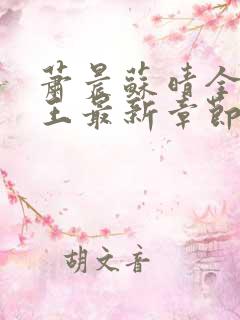 蕭晨蘇晴全
王最新章節
胡文音